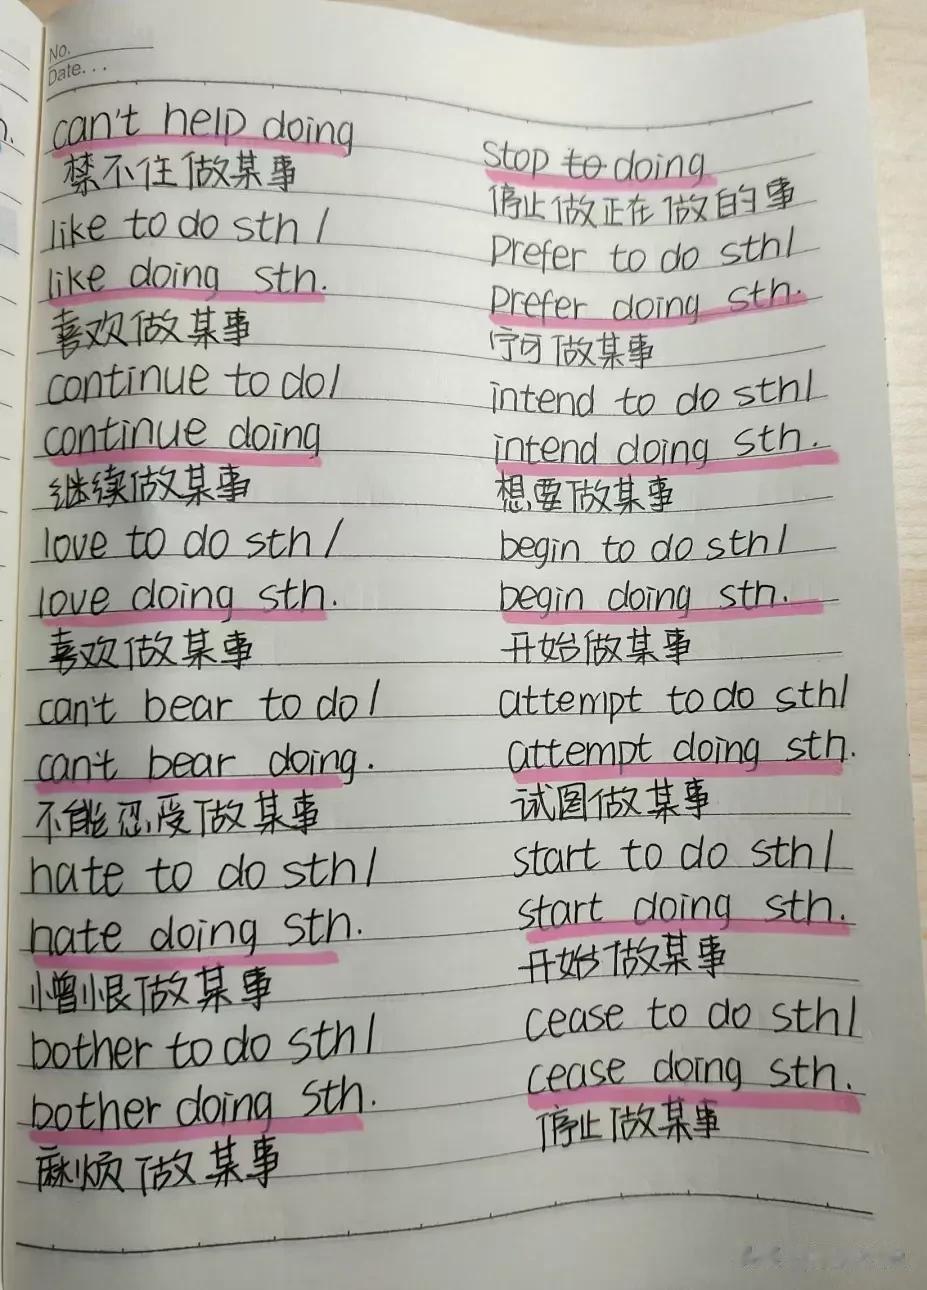 No.
Date...
can't help doing
禁不住做某事
like to do sth /
like doing sth.
喜欢做某事
continue to do/
continue doing
继续做某事
love to do sth /
love doing sth.
喜欢做某事
can't bear to do/
can't bear doing.
不能忍受做某事
hate to do sth/
hate doing sth.
憎恨做某事
bother to do sth/
bother doing sth.
麻烦做某事
stop to doing
停止做正在做的事
Prefer to do sth/
Prefer doing sth.
宁可做某事
intend to do sth/
intend doing sth.
想要做某事
begin to do sth/
begin doing sth.
开始做某事
attempt to do sth/
attempt doing sth.
试图做某事
start to do sth/
start doing sth.
开始做某事
cease to do sth/
cease doing sth.
停止做某事